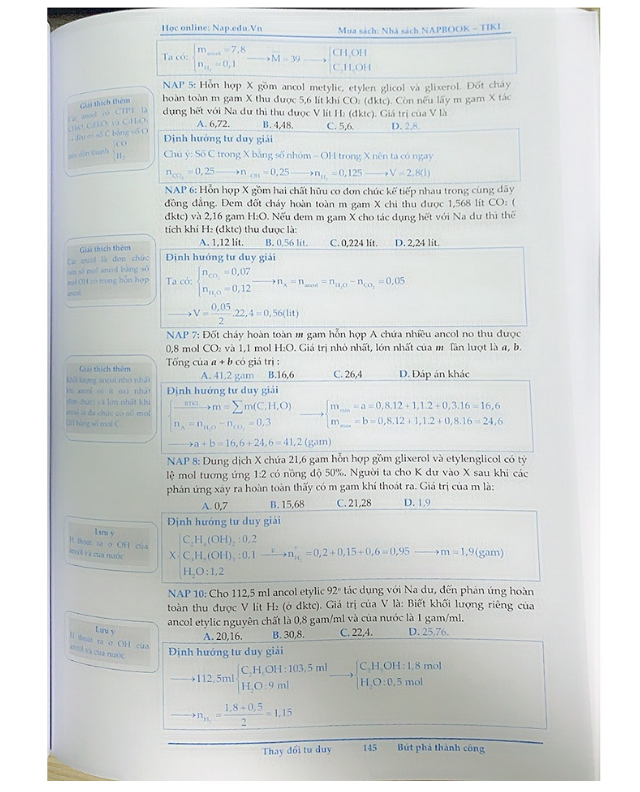 Học online: Nap.edu.Vn Mua sách: Nhà sách NAPBOOK – TIKI
Ta có: { m ancol = 7,8 n H₂ = 0,1 ⟶ M = 39 ⟶ [ CH₃OH C₂H₅OH
NAP 5: Hỗn hợp X gồm ancol metylic, etylen glicol và glixerol. Đốt cháy
hoàn toàn m gam X thu được 5,6 lít khí CO₂ (đktc). Còn nếu lấy m gam X tác
dụng hết với Na dư thì thu được V lít H₂ (đktc). Giá trị của V là
A. 6,72. B. 4,48. C. 5,6. D. 2,8.
Giải thích thêm
Định hướng tư duy giải
Chú ý: Số C trong X bằng số nhóm – OH trong X nên ta có ngay
n CO₂ = 0,25 ⟶ n OH = 0,25 ⟶ n H₂ = 0,125 ⟶ V = 2.8(l)
NAP 6: Hỗn hợp X gồm hai chất hữu cơ đơn chức kế tiếp nhau trong cùng dãy
đồng đẳng. Đem đốt cháy hoàn toàn m gam X chỉ thu được 1,568 lít CO₂ (
đktc) và 2,16 gam H₂O. Nếu đem m gam X cho tác dụng hết với Na dư thì thể
tích khí H₂ (đktc) thu được là:
A. 1,12 lít. B. 0,56 lít. C. 0,224 lít. D. 2,24 lít.
Giải thích thêm
Các ancol là đơn chức
nên số mol ancol bằng số
mol OH có trong hỗn hợp
ancol
Định hướng tư duy giải
Ta có: { n CO₂ = 0,07 n H₂O = 0,12 ⟶ n X = n ancol = n H₂O − n CO₂ = 0,05
⟶ V = 0,05/2 .22,4 = 0,56(lít)
NAP 7: Đốt cháy hoàn toàn m gam hỗn hợp A chứa nhiều ancol no thu được
0,8 mol CO₂ và 1,1 mol H₂O. Giá trị nhỏ nhất, lớn nhất của m lần lượt là a, b.
Tổng của a + b có giá trị :
A. 41,2 gam B.16,6 C. 26,4 D. Đáp án khác
Giải thích thêm
Khối lượng ancol nhỏ nhất
khi ancol có ít oxi nhất
(đơn chức) và lớn nhất khi
ancol là đa chức có số mol
OH bằng số mol C.
Định hướng tư duy giải
{ BTKL ⟶ m = ∑m(C,H,O) n A = n H₂O − n CO₂ = 0,3 ⟶ { m min = a = 0,8.12 + 1,1.2 + 0,3.16 = 16,6 m max = b = 0,8.12 + 1,1.2 + 0,8.16 = 24,6
⟶ a + b = 16,6 + 24,6 = 41,2 (gam)
NAP 8: Dung dịch X chứa 21,6 gam hỗn hợp gồm glixerol và etylenglicol có tỷ
lệ mol tương ứng 1:2 có nồng độ 50%. Người ta cho K dư vào X sau khi các
phản ứng xảy ra hoàn toàn thấy có m gam khí thoát ra. Giá trị của m là:
A. 0,7 B. 15,68 C. 21,28 D. 1,9
Lưu ý
H₂ thoát ra ở OH của
ancol và của nước
Định hướng tư duy giải
X { C₂H₄(OH)₂ : 0,2 C₃H₅(OH)₃ : 0,1 H₂O : 1,2 K ⟶ n H₂ = 0,2 + 0,15 + 0,6 = 0,95 ⟶ m = 1,9(gam)
NAP 10: Cho 112,5 ml ancol etylic 92º tác dụng với Na dư, đến phản ứng hoàn
toàn thu được V lít H₂ (ở đktc). Giá trị của V là: Biết khối lượng riêng của
ancol etylic nguyên chất là 0,8 gam/ml và của nước là 1 gam/ml.
A. 20,16. B. 30,8. C. 22,4. D. 25,76.
Lưu ý
H₂ thoát ra ở OH của
ancol và của nước
Định hướng tư duy giải
⟶ 112,5ml { C₂H₅OH : 103,5 ml H₂O : 9 ml ⟶ { C₂H₅OH : 1,8 mol H₂O : 0,5 mol
⟶ n H₂ = 1,8 + 0,5/2 = 1,15
Thay đổi tư duy 145 Bứt phá thành công